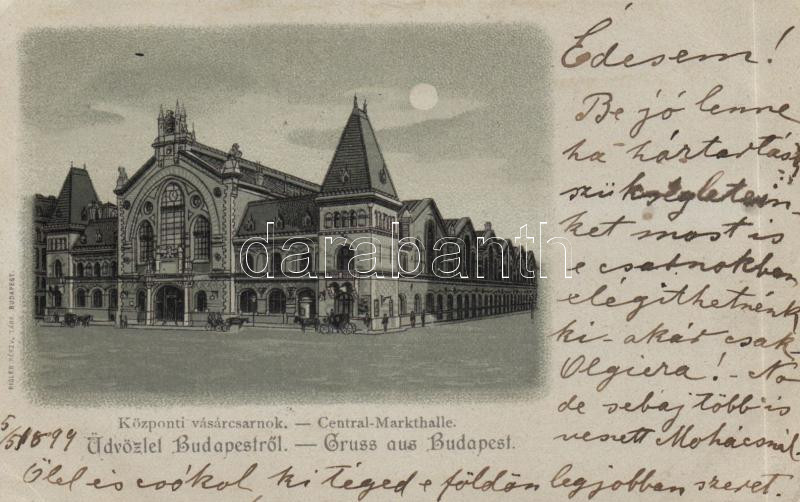 Édesem!
Be jó lenne
ha háztartási
szükségletein-
ket most is
e csarnokban
elégíthetnénk
ki - akár csak
Olgiera! - No
de sebaj több is
veszett Mohácsnál -
Ölel és csókol, ki téged e földön legjobban szeret.
5/5 1899
Központi vásárcsarnok. — Central-Markthalle.
Üdvözlet Budapestről. — Gruss aus Budapest.
RIGLER RÉSZV. TÁRS. BUDAPEST.
darabanth.com